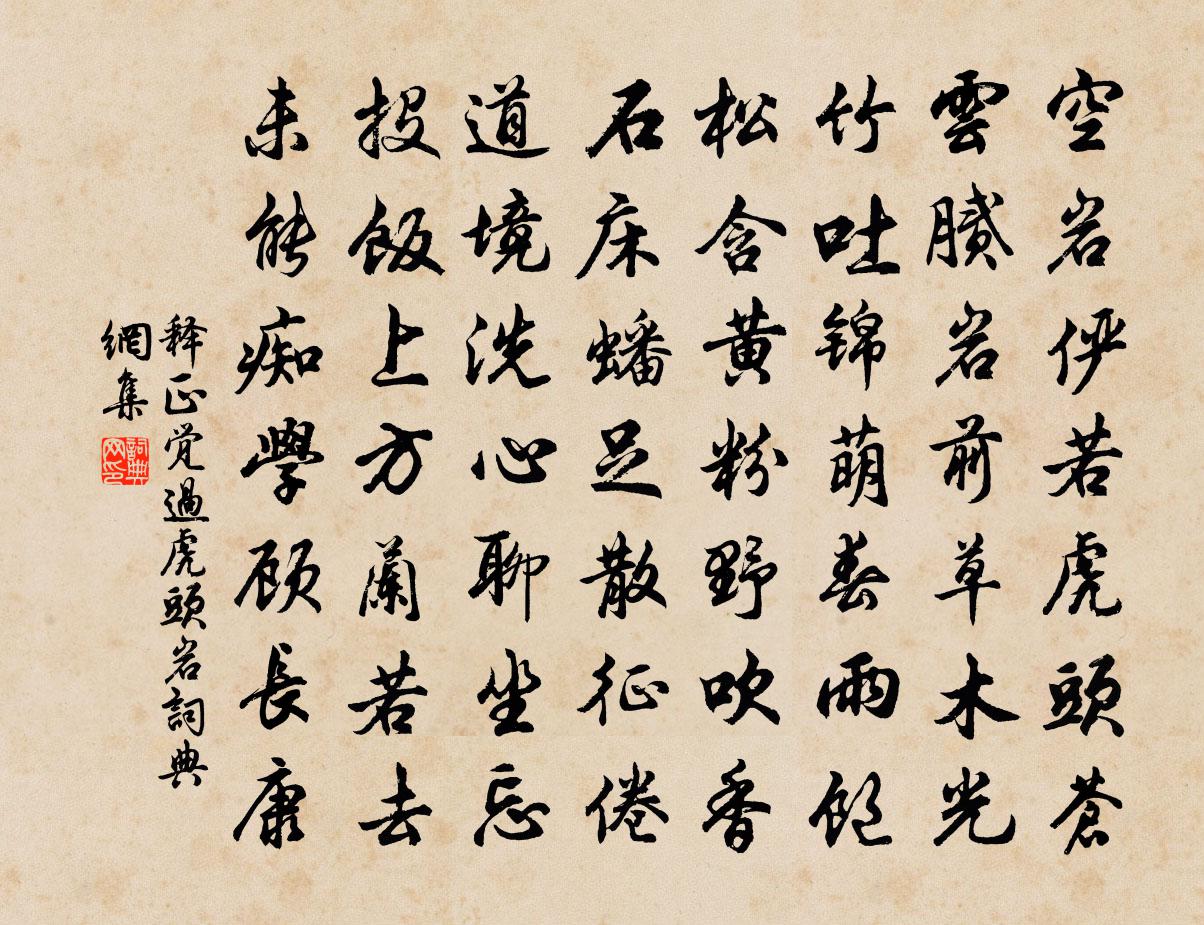 空岩俨若虎頭蒼
雲膩岩前草木光
竹吐锦萌春雨飽
松含黄粉野吹香
石床蟠足散征倦
道境洗心聊坐忘
投飯上方蘭若去
未能痴學顾長康
释正觉過虎頭岩詞典
網集
詞典网印